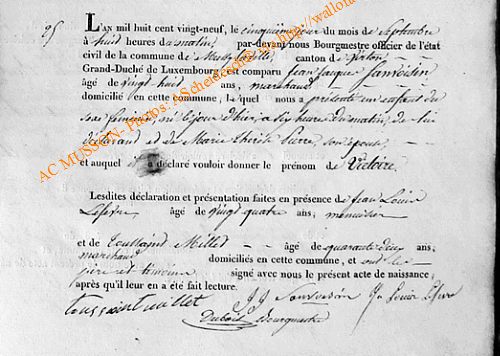 95
L'AN mil huit cent vingt-neuf, le cinquième jour du mois de Septembre
à huit heures du matin, par-devant nous Bourgmestre officier de l'état
civil de la commune de canton de Virton,
Grand-Duché de Luxembourg, est comparu Jean Jacques
âgé de vingt huit ans, marchand
domicilié en cette commune, lequel nous a présenté un enfant du
sexe féminin, né le jour d'hier, à six heures du matin, de lui
déclarant et de Marie Thérèse Pierre, son épouse,
et auquel il a déclaré vouloir donner le prénom de Victoire,
Lesdites déclaration et présentation faites en présence de Jean Louis
Lefevre âgé de vingt quatre ans, menuisier
et de Toussaint Millet âgé de quarante deux ans,
marchand domiciliés en cette commune, et ont les
père et témoins signé avec nous le présent acte de naissance,
après qu'il leur en a été fait lecture.
toussaint millet J J Jn Louis Lefevre
Dubois Bourgmestre
AC MUSSON-Photos: http://wallon